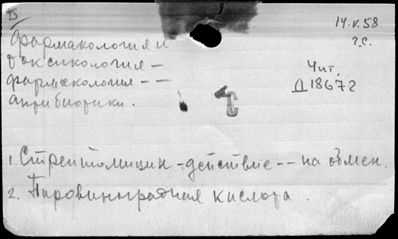 Б
14.V.58
г.с.
Фармакология и
токсикология —
фармакология — —
антибиотики.
Чит.
Д18672
1. Стрептомицин - действие -- на обмен.
2. Пировиноградная кислота.